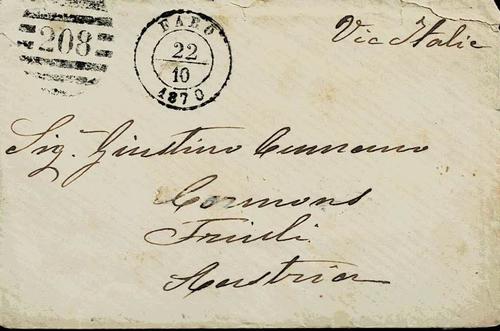 208
FARO
22
10
1870
Via Italie
Sig. Giustino
Cormons
Friuli
Austria